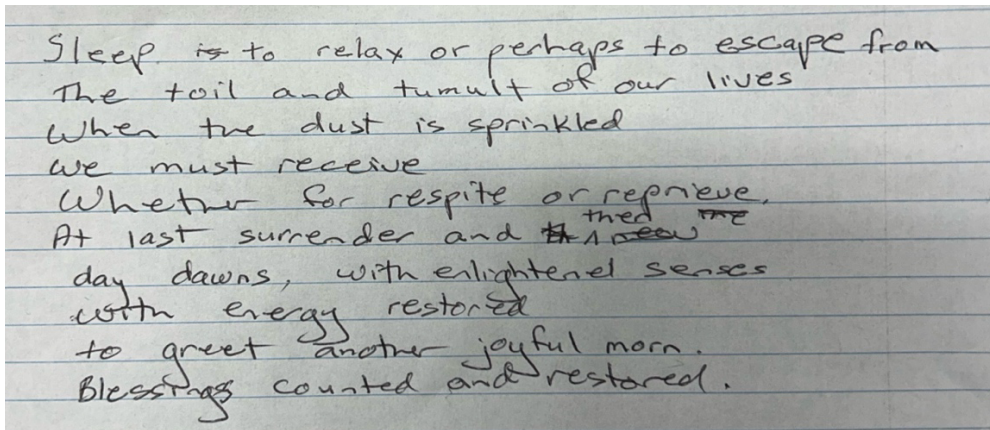 Sleep is to relax or perhaps to escape from
The toil and tumult of our lives
When the dust is sprinkled
we must receive
Whether for respite or reprieve.
At last surrender and then the new
day dawns, with enlightened senses
with energy restored
to greet another joyful morn.
Blessings counted and restored.